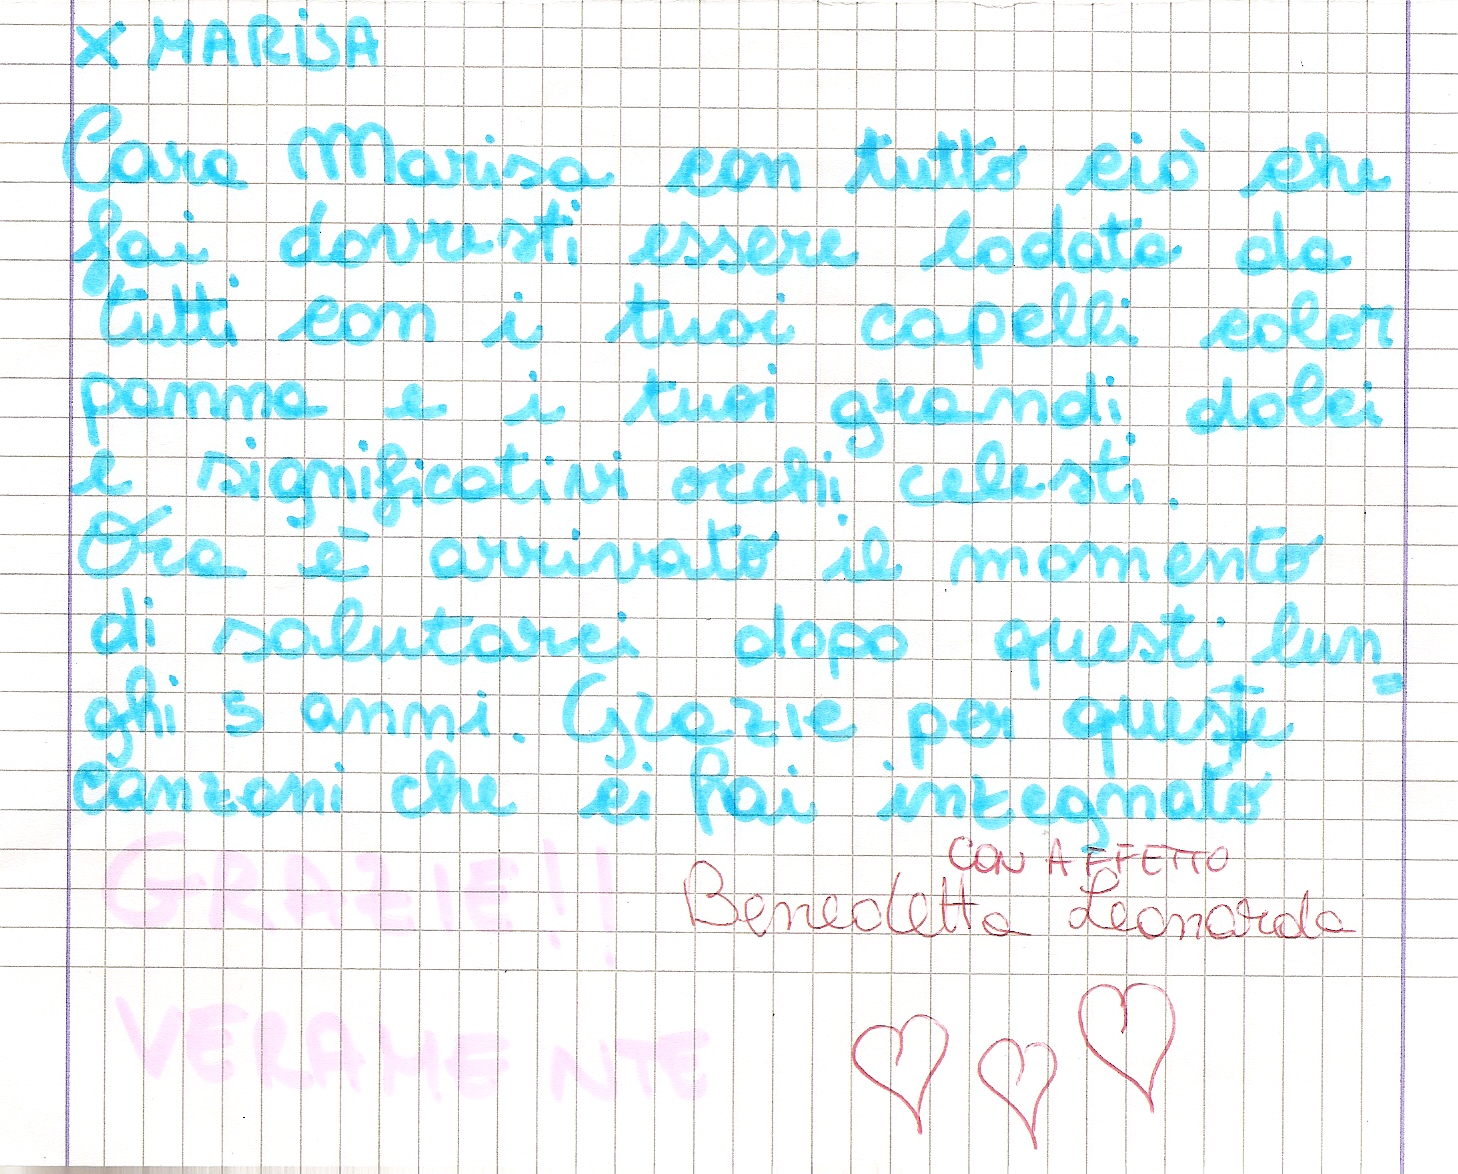 X MARISA
Cara Marisa con tutto ciò che
fai dovresti essere lodata da
tutti con i tuoi capelli color
panna e i tuoi grandi dolci
e significativi occhi celesti.
Ora è arrivato il momento
di salutarci dopo questi lun=
ghi 5 anni. Grazie per queste
canzoni che ci hai integnato
CON AFFETTO
GRAZIE!! Benedetta Leonarda
VERAMENTE